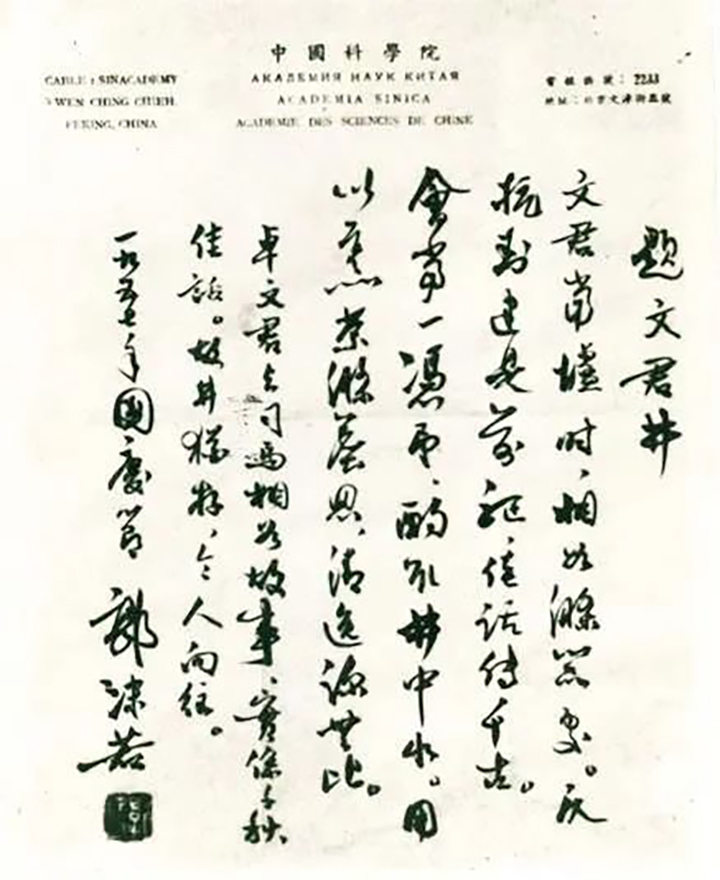 中國科學院
АКАДЕМИЯ НАУК КИТАЯ
ACADEMIA SINICA
ACADEMIE DES SCIENCES DE CHINE
CABLE: SINACADEMY
3 WEN CHING CHIEH,
PEKING, CHINA
電報掛號:2233
地址:北京文津街三號
題文君井
文君當壚時、相如滌器處。反
抗封建是前驅、佳話傳千古。
會當一憑弔、酌取井中水。用
以烹茶滌塵思、清逸涼無比。
卓文君与司馬相如故事、實係千秋
佳話。故井猶存、令人向往。
一九五七年國慶節 郭沫若